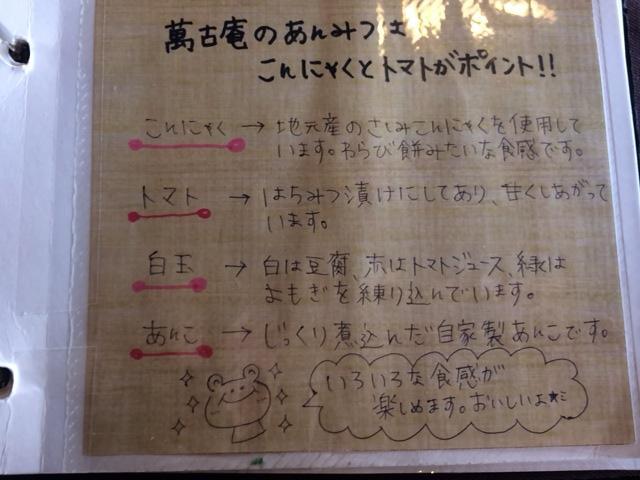 萬古庵のあんみつは
こんにゃくとトマトがポイント!!
こんにゃく → 地元産のさしみこんにゃくを使用して
います。わらび餅みたいな食感です。
トマト → はちみつ漬けにしてあり、甘くしあがって
います。
白玉 → 白は豆腐、赤はトマトジュース、緑は
よもぎを練り込んでいます。
あんこ → じっくり煮込んだ自家製あんこです。
いろいろな食感が
楽しめます。おいしいよ★ミ